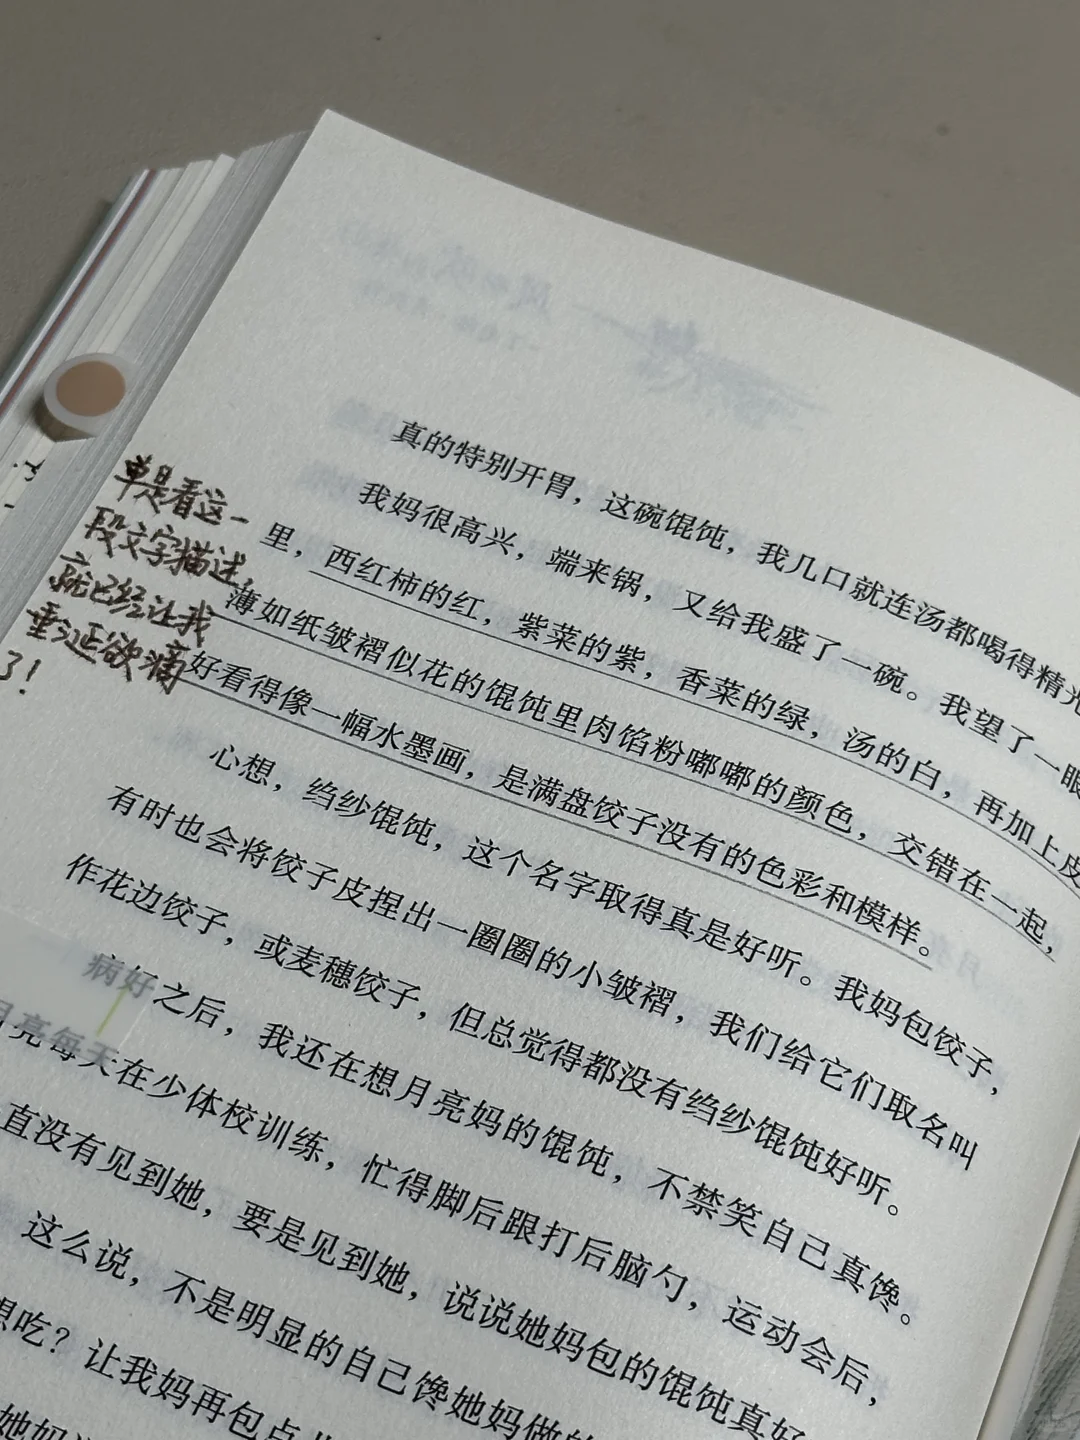 真的特别开胃，这碗馄饨，我几口就连汤都喝得精光
我妈很高兴，端来锅，又给我盛了一碗。我望了一眼
里，西红柿的红，紫菜的紫，香菜的绿，汤的白，再加上皮
薄如纸皱褶似花的馄饨里肉馅粉嘟嘟的颜色，交错在一起，
好看得像一幅水墨画，是满盘饺子没有的色彩和模样。
心想，绉纱馄饨，这个名字取得真是好听。我妈包饺子，
有时也会将饺子皮捏出一圈圈的小皱褶，我们给它们取名叫
作花边饺子，或麦穗饺子，但总觉得都没有绉纱馄饨好听。
病好之后，我还在想月亮妈的馄饨，不禁笑自己真馋。
月亮每天在少体校训练，忙得脚后跟打后脑勺，运动会后，
直没有见到她，要是见到她，说说她妈包的馄饨真好
这么说，不是明显的自己馋她妈做的
想吃？让我妈再包点
她妈
单是看这一
段文字描述，
就已经让我
垂涎欲滴
了！